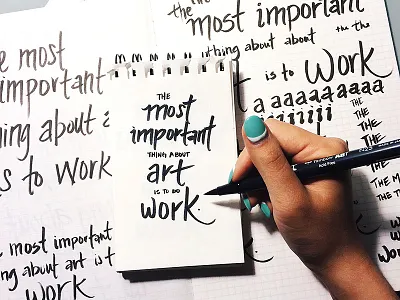 the most important
the
thing about about
the the
is to work
aaaaaaaaa
THE
THE
THE
THE
THE MO
THE MOST
he most
important
hing about a
s to work
THE
most
important
THING ABOUT
art
IS TO DO
work.
e most important
ing about art is t
work